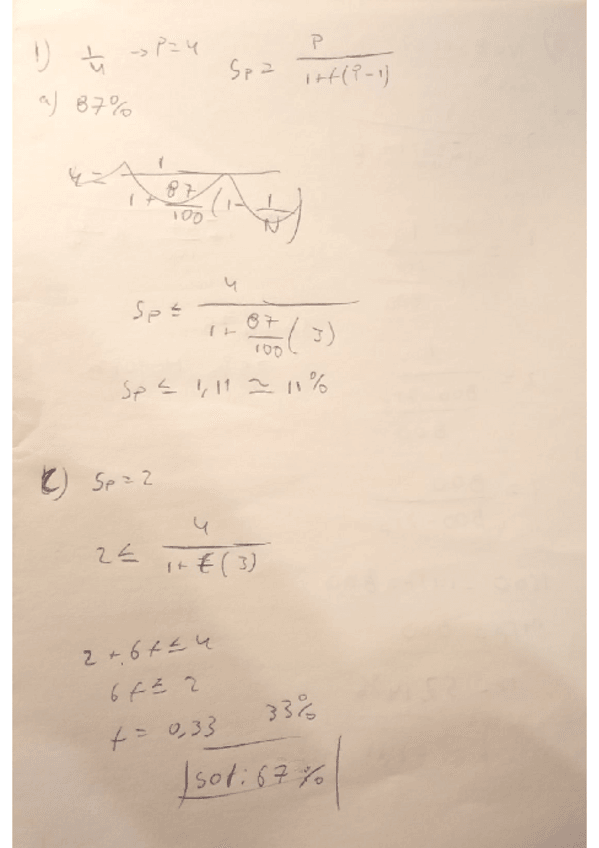 1) 1/4 → P=4 Sp = P/(1+f(P-1))
a) 87%
4 = 1/(1+87/100(1-1/N))
Sp ≤ 4/(1+87/100(3))
Sp ≤ 1,11 ≃ 11%
c) Sp = 2
2 ≤ 4/(1+f(3))
2 + 6f ≤ 4
6f ≤ 2
f = 0,33 33%
sol: 67%